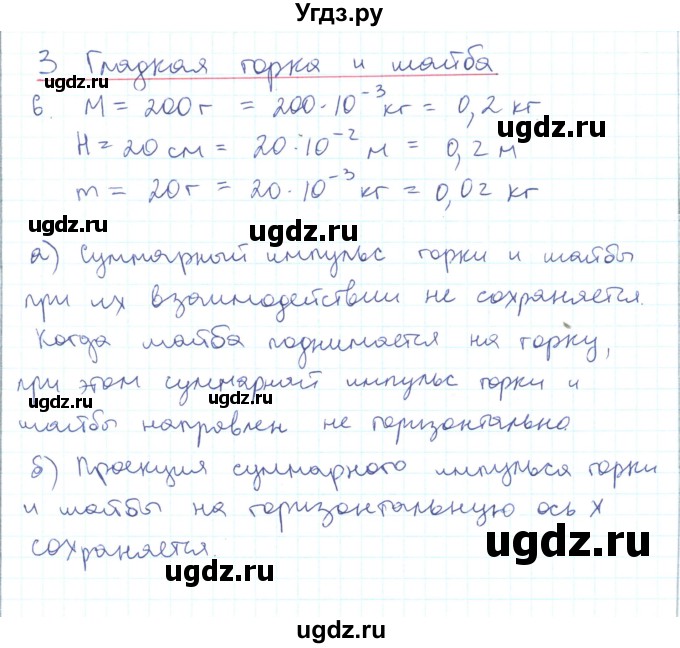 Угдз.ру
3 Гладкая горка и шайба
ugdz.ru ugdz.ru
6. М = 200г = 200·10⁻³кг = 0,2 кг
Н = 20 см = 20·10⁻² м = 0,2 м
m = 20г = 20·10⁻³ кг = 0,02 кг
ugdz.ru ugdz.ru
а) Суммарный импульс горки и шайбы
при их взаимодействии не сохраняется.
Когда шайба поднимается на горку,
при этом суммарный импульс горки и
ugdz.ru ugdz.ru
шайбы направлен не горизонтально.
б) Проекция суммарного импульса горки
и шайбы на горизонтальную ось Х
ugdz.ru
сохраняется.
ugdz.ru
ugdz.ru